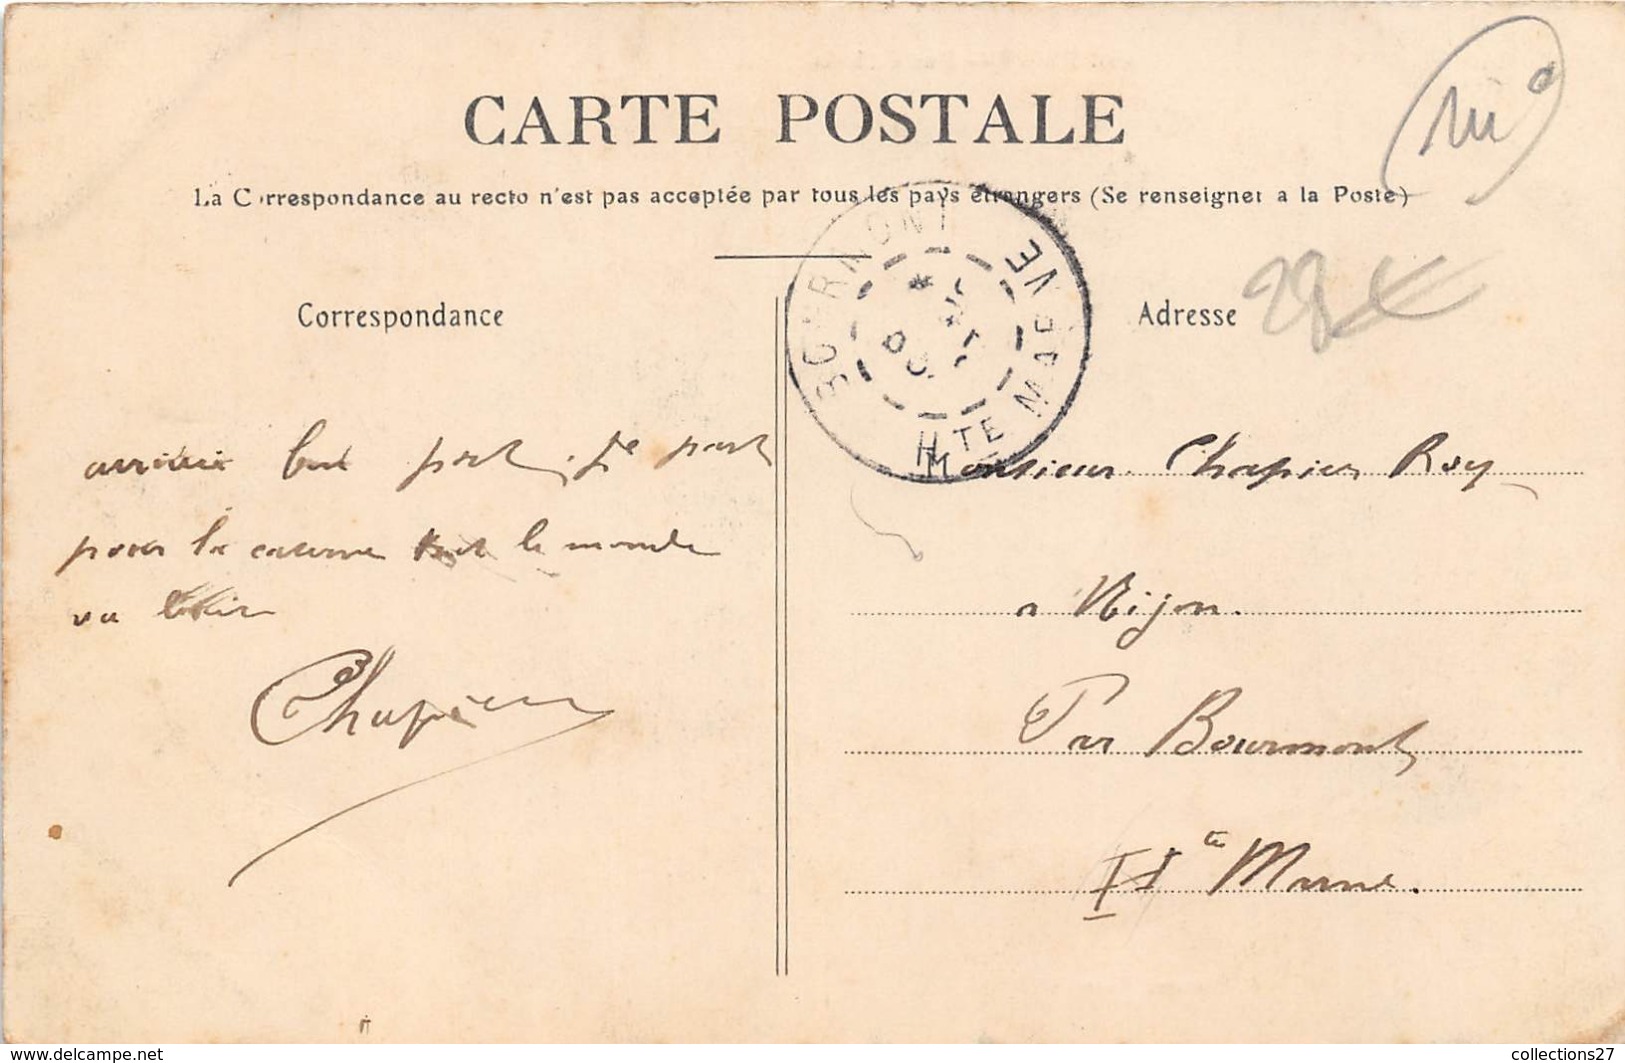 CARTE POSTALE
La Correspondance au recto n'est pas acceptée par tous les pays étrangers (Se renseigner a la Poste)
BOURMONT
HTE MARNE
Correspondance
Adresse
28€
arrivée bon port. Je part
pour la caserne tout le monde
va bien
Chapier
Monsieur Chapier Roy
a Nijon.
Par Bourmont
Hte Marne.
www.delcampe.net
collections27